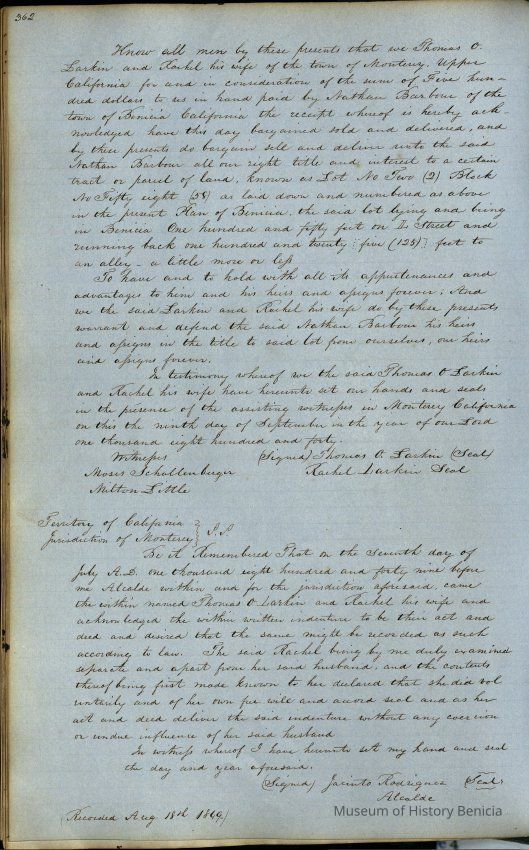 362
Know all men by these presents that we Thomas O.
Larkin and Rachel his wife of the town of Monterey, Upper
California for and in consideration of the sum of Five hun-
dred dollars to us in hand paid by Nathan Barbour of the
town of Benicia California the receipt whereof is hereby ack-
nowledged have this day bargained sold and delivered, and
by these presents do bargain sell and deliver unto the said
Nathan Barbour all our right title and interest to a certain
tract or parcel of land, known as Lot No Two (2) Block
No Fifty eight (58) as laid down and numbered as above
in the present Plan of Benicia, the said lot lying and being
in Benicia One hundred and fifty feet on Street and
running back one hundred and twenty five (125) feet to
an alley - a little more or less
To have and to hold with all its appurtenances and
advantages to him and his heirs and assigns forever; And
we the said Larkin and Rachel his wife do by these presents
warrant and defend the said Nathan Barbour his heirs
and assigns in the title to said lot from ourselves, our heirs
and assigns forever.
In testimony whereof we the said Thomas O Larkin
and Rachel his wife have hereunto set our hands and seals
in the presence of the assisting witnesses in Monterey California
on this the ninth day of September in the year of our Lord
one thousand eight hundred and forty.
Witnesses (Signed) Thomas O. Larkin (Seal)
Moses Schallenberger Rachel Larkin Seal
Milton Little
Territory of California
Jurisdiction of Monterey } S.S.
Be it Remembered That on the Seventh day of
July A.D. one thousand eight hundred and forty nine before
me Alcalde within and for the jurisdiction aforesaid, came
the within named Thomas O Larkin and Rachel his wife and
acknowledged the within written indenture to be their act and
deed and desired that the same might be recorded as such
according to law. The said Rachel being by me duly examined
separate and apart from her said husband, and the contents
thereof being first made known to her declared that she did vol
untarily and of her own free will and accord seal and as her
act and deed deliver the said indenture without any coercion
or undue influence of her said husband
In witness whereof I have hereunto set my hand and seal
the day and year aforesaid.
(Signed) Jacinto Rodriguez (Seal)
Alcalde
(Recorded Aug 18th 1849)
Museum of History Benicia